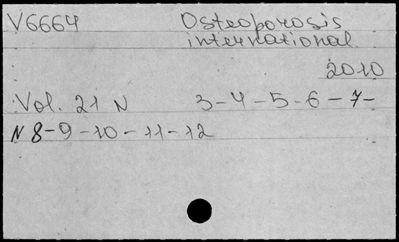 V6664 Osteoporosis
international
2010
Vol. 21 N 3-4-5-6-7-
N 8-9-10-11-12